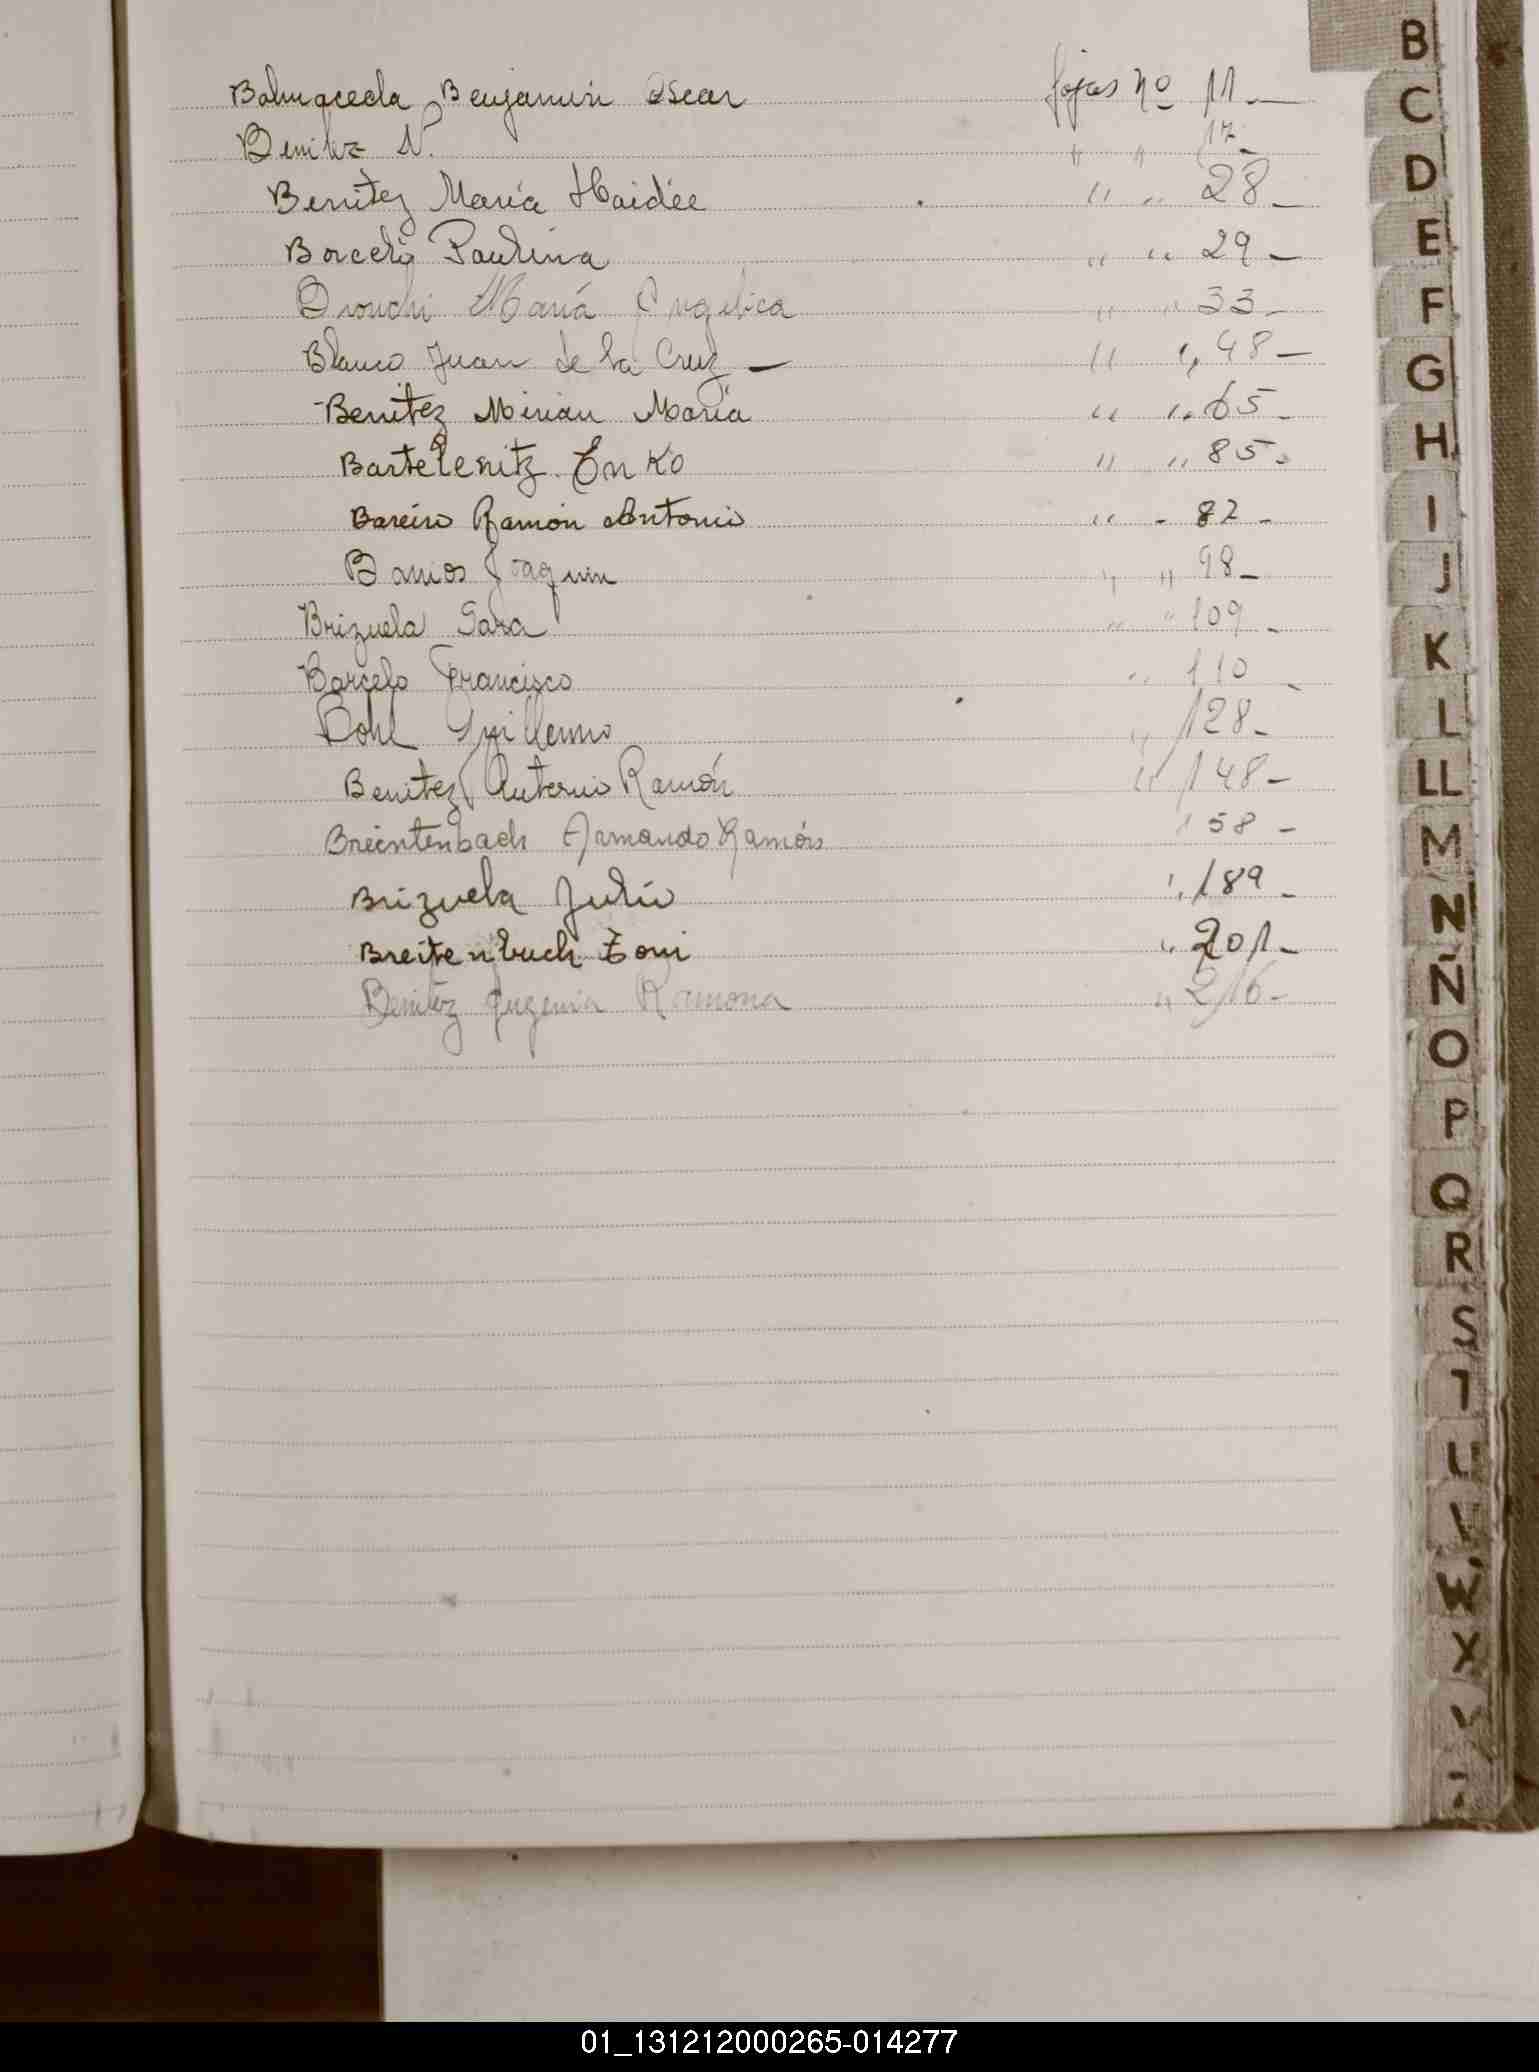 Balmaceda Benjamin Oscar fojas nº 11—
Benitez N. " " 17—
Benitez María Haidée " " 28—
Barceló Paulina " " 29—
Bronchi María Angelica " " 33—
Blanco Juan de la Cruz — " " 48—
Benitez Mirian María " " 65—
Bartelenitz Enko " " 85—
Bareiro Ramón Antonio " - 82—
Barrios Joaquin " " 98—
Brizuela Sara " " 109—
Barcelo Francisco " 110—
Bohl Guillermo " 128—
Benitez Antonio Ramón " 148—
Breintenbach Armando Ramón 158—
Brizuela Julio " 189—
Breitenbuch Toni " 201—
Benitez Eugenia Ramona " 216—
B
C
D
E
F
G
H
I
J
K
L
LL
M
N
Ñ
O
P
Q
R
S
T
U
V
W
X
Y
Z
01_131212000265-014277